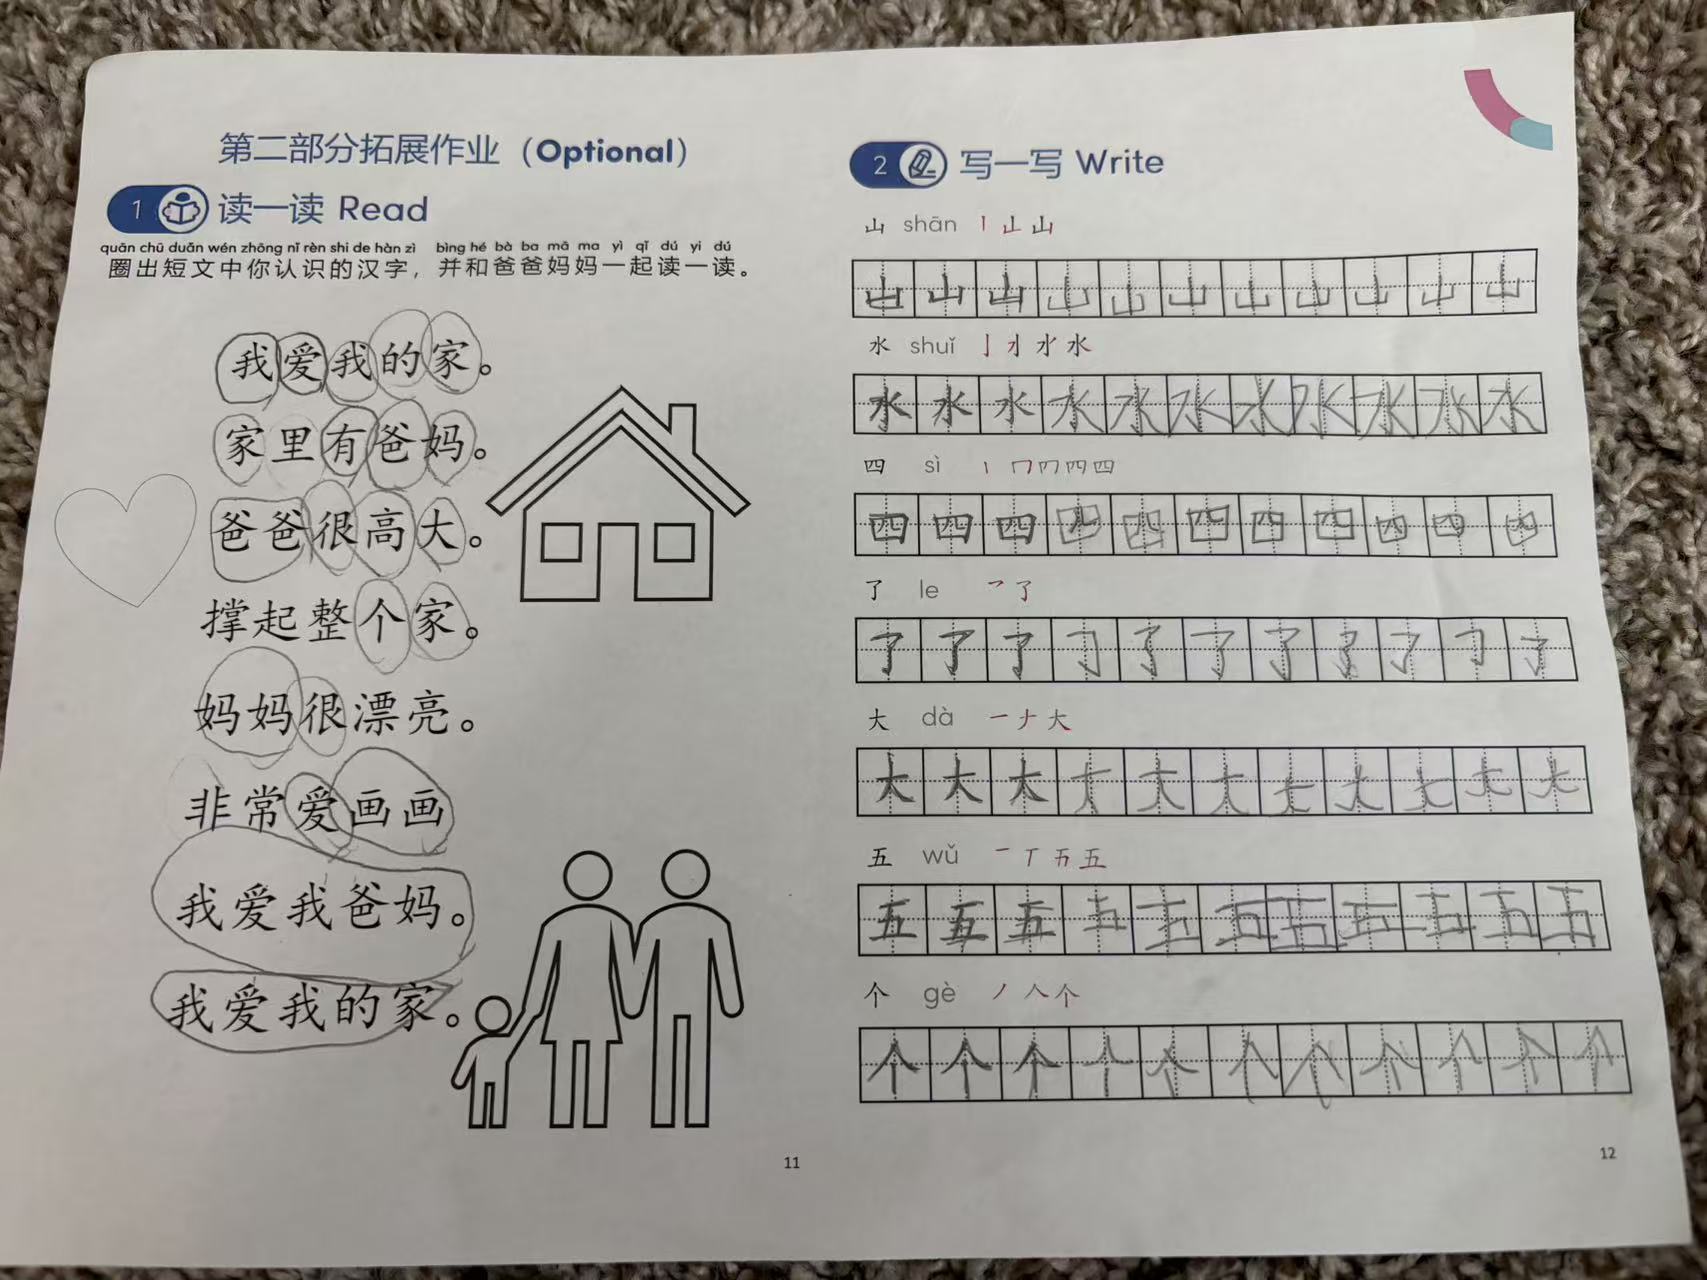 第二部分拓展作业（Optional）
1 读一读 Read
quān chū duǎn wén zhōng nǐ rèn shi de hàn zì bìng hé bà ba mā ma yì qǐ dú yi dú
圈出短文中你认识的汉字，并和爸爸妈妈一起读一读。
我爱我的家。
家里有爸妈。
爸爸很高大。
撑起整个家。
妈妈很漂亮。
非常爱画画
我爱我爸妈。
我爱我的家。
11
2 写一写 Write
山 shān 丨 山 山
山 山 山 山 山 山 山 山 山 山 山
水 shuǐ 亅 水
水 水 水 水 水 水 水 水 水 水 水
四 sì 丨 冂 四 四
四 四 四 四 四 四 四 四 四 四 四
了 le 乛 了
了 了 了 了 了 了 了 了 了 了 了
大 dà 一 ナ 大
大 大 大 大 大 大 大 大 大 大 大
五 wǔ 一 丅 五
五 五 五 五 五 五 五 五 五 五 五
个 gè 丿 人 个
个 个 个 个 个 个 个 个 个 个 个
12